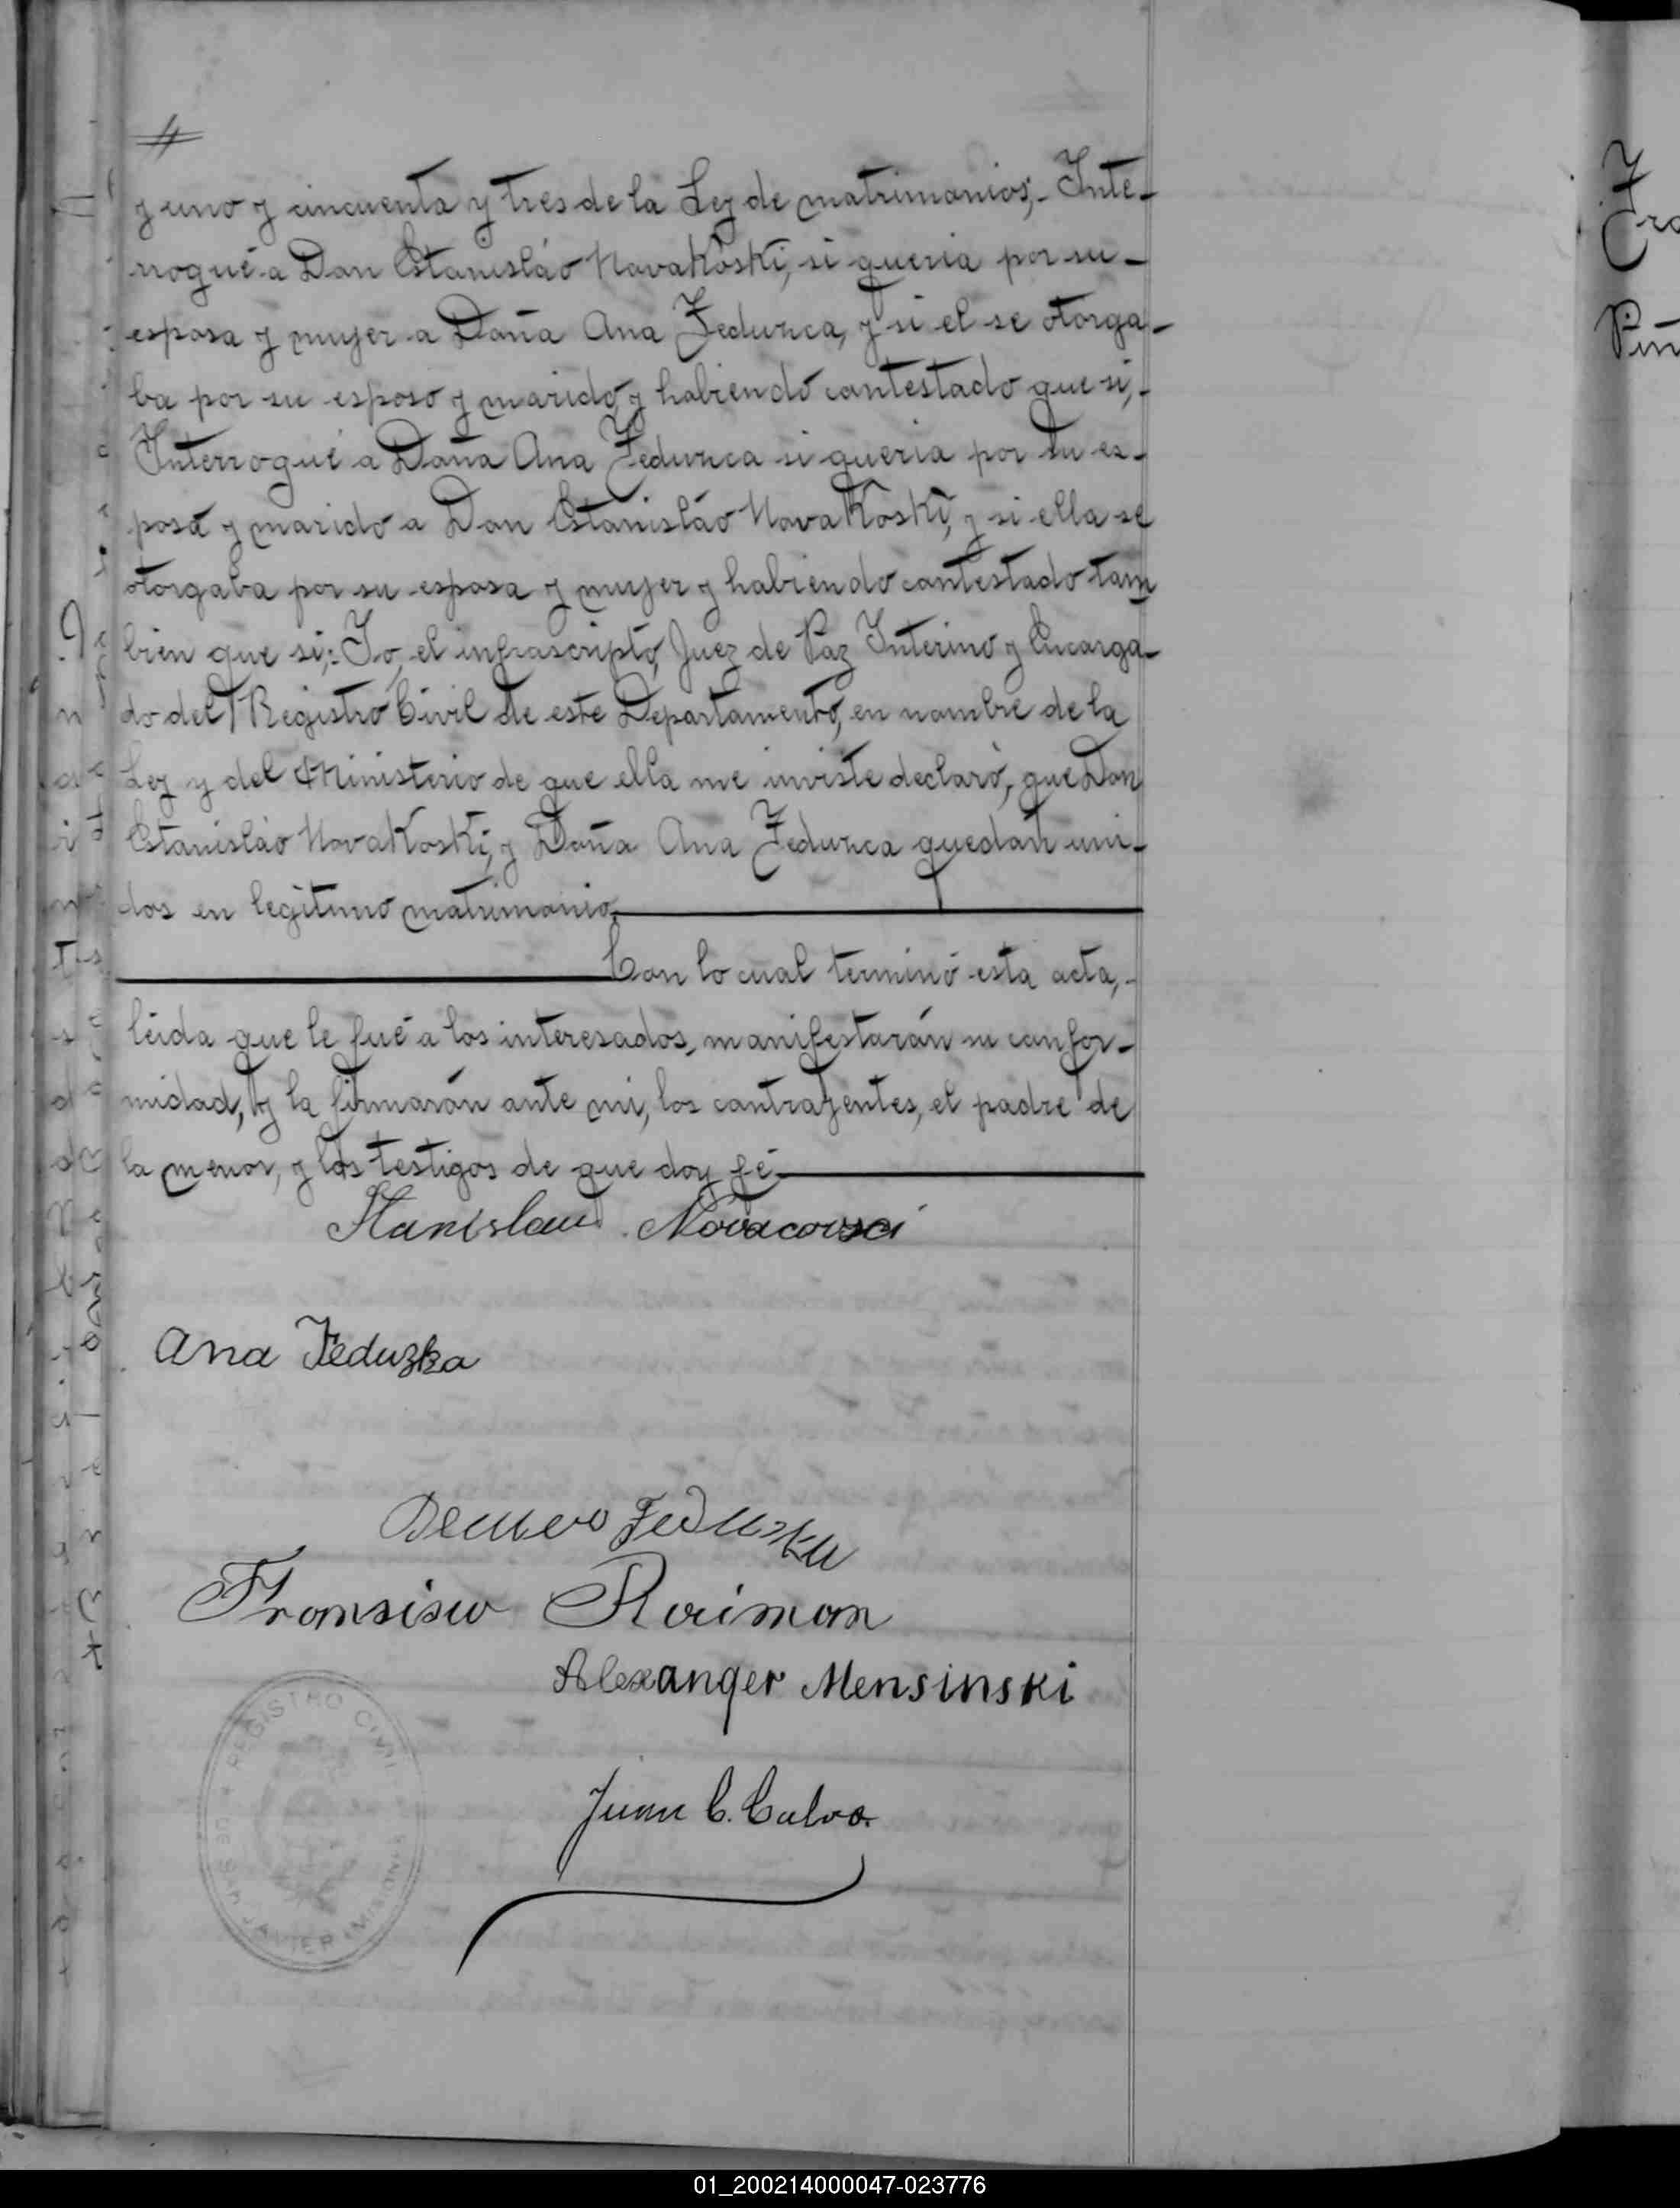 y uno y cincuenta y tres de la Ley de matrimonios;- Inte-
rrogué a Don Estanisláo Novakoski, si queria por su-
esposa y mujer a Doña Ana Feduzca, y si el se otorga-
ba por su esposo y marido, y habiendo contestado que si,-
Interrogué a Doña Ana Feduzca si queria por su es-
poso y marido a Don Estanisláo Novakoski, y si ella se
otorgaba por su esposa y mujer y habiendo contestado tam
bien que si;: Yo, el infrascripto, Juez de Paz Interino y Encarga-
do del Registro Civil de este Departamento, en nombre de la
Ley y del Ministerio de que ella me inviste declaró, que Don
Estanisláo Novakoski, y Doña Ana Feduzca quedan uni-
dos en legitimo matrimonio.
Con lo cual terminó esta acta,-
leida que le fué a los interesados, manifestarón su confor-
midad, y la firmarón ante mi, los contrayentes, el padre de
la menor, y los testigos de que doy fé
Stanislau Novacovsci
Ana Feduzka
Feduzku
Fransisco Roiman
Alexanger Mensinski
Juan C. Calvo.
REGISTRO CIVIL
DE SAN JAVIER (MISIONES)
01_200214000047-023776